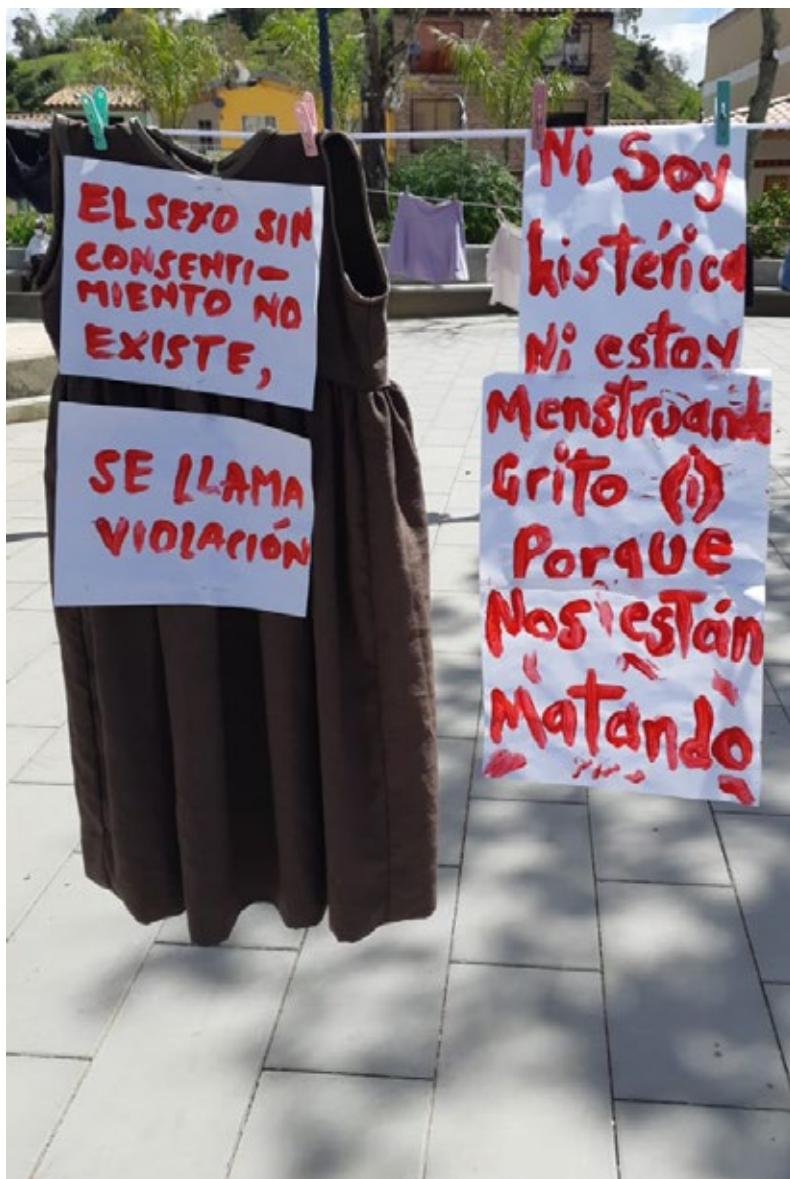 EL SEXO SIN
CONSENTI-
MIENTO NO
EXISTE,
SE LLAMA
VIOLACIÓN
Ni Soy
histérica
Ni estoy
Menstruando
Grito
Porque
Nos están
Matando